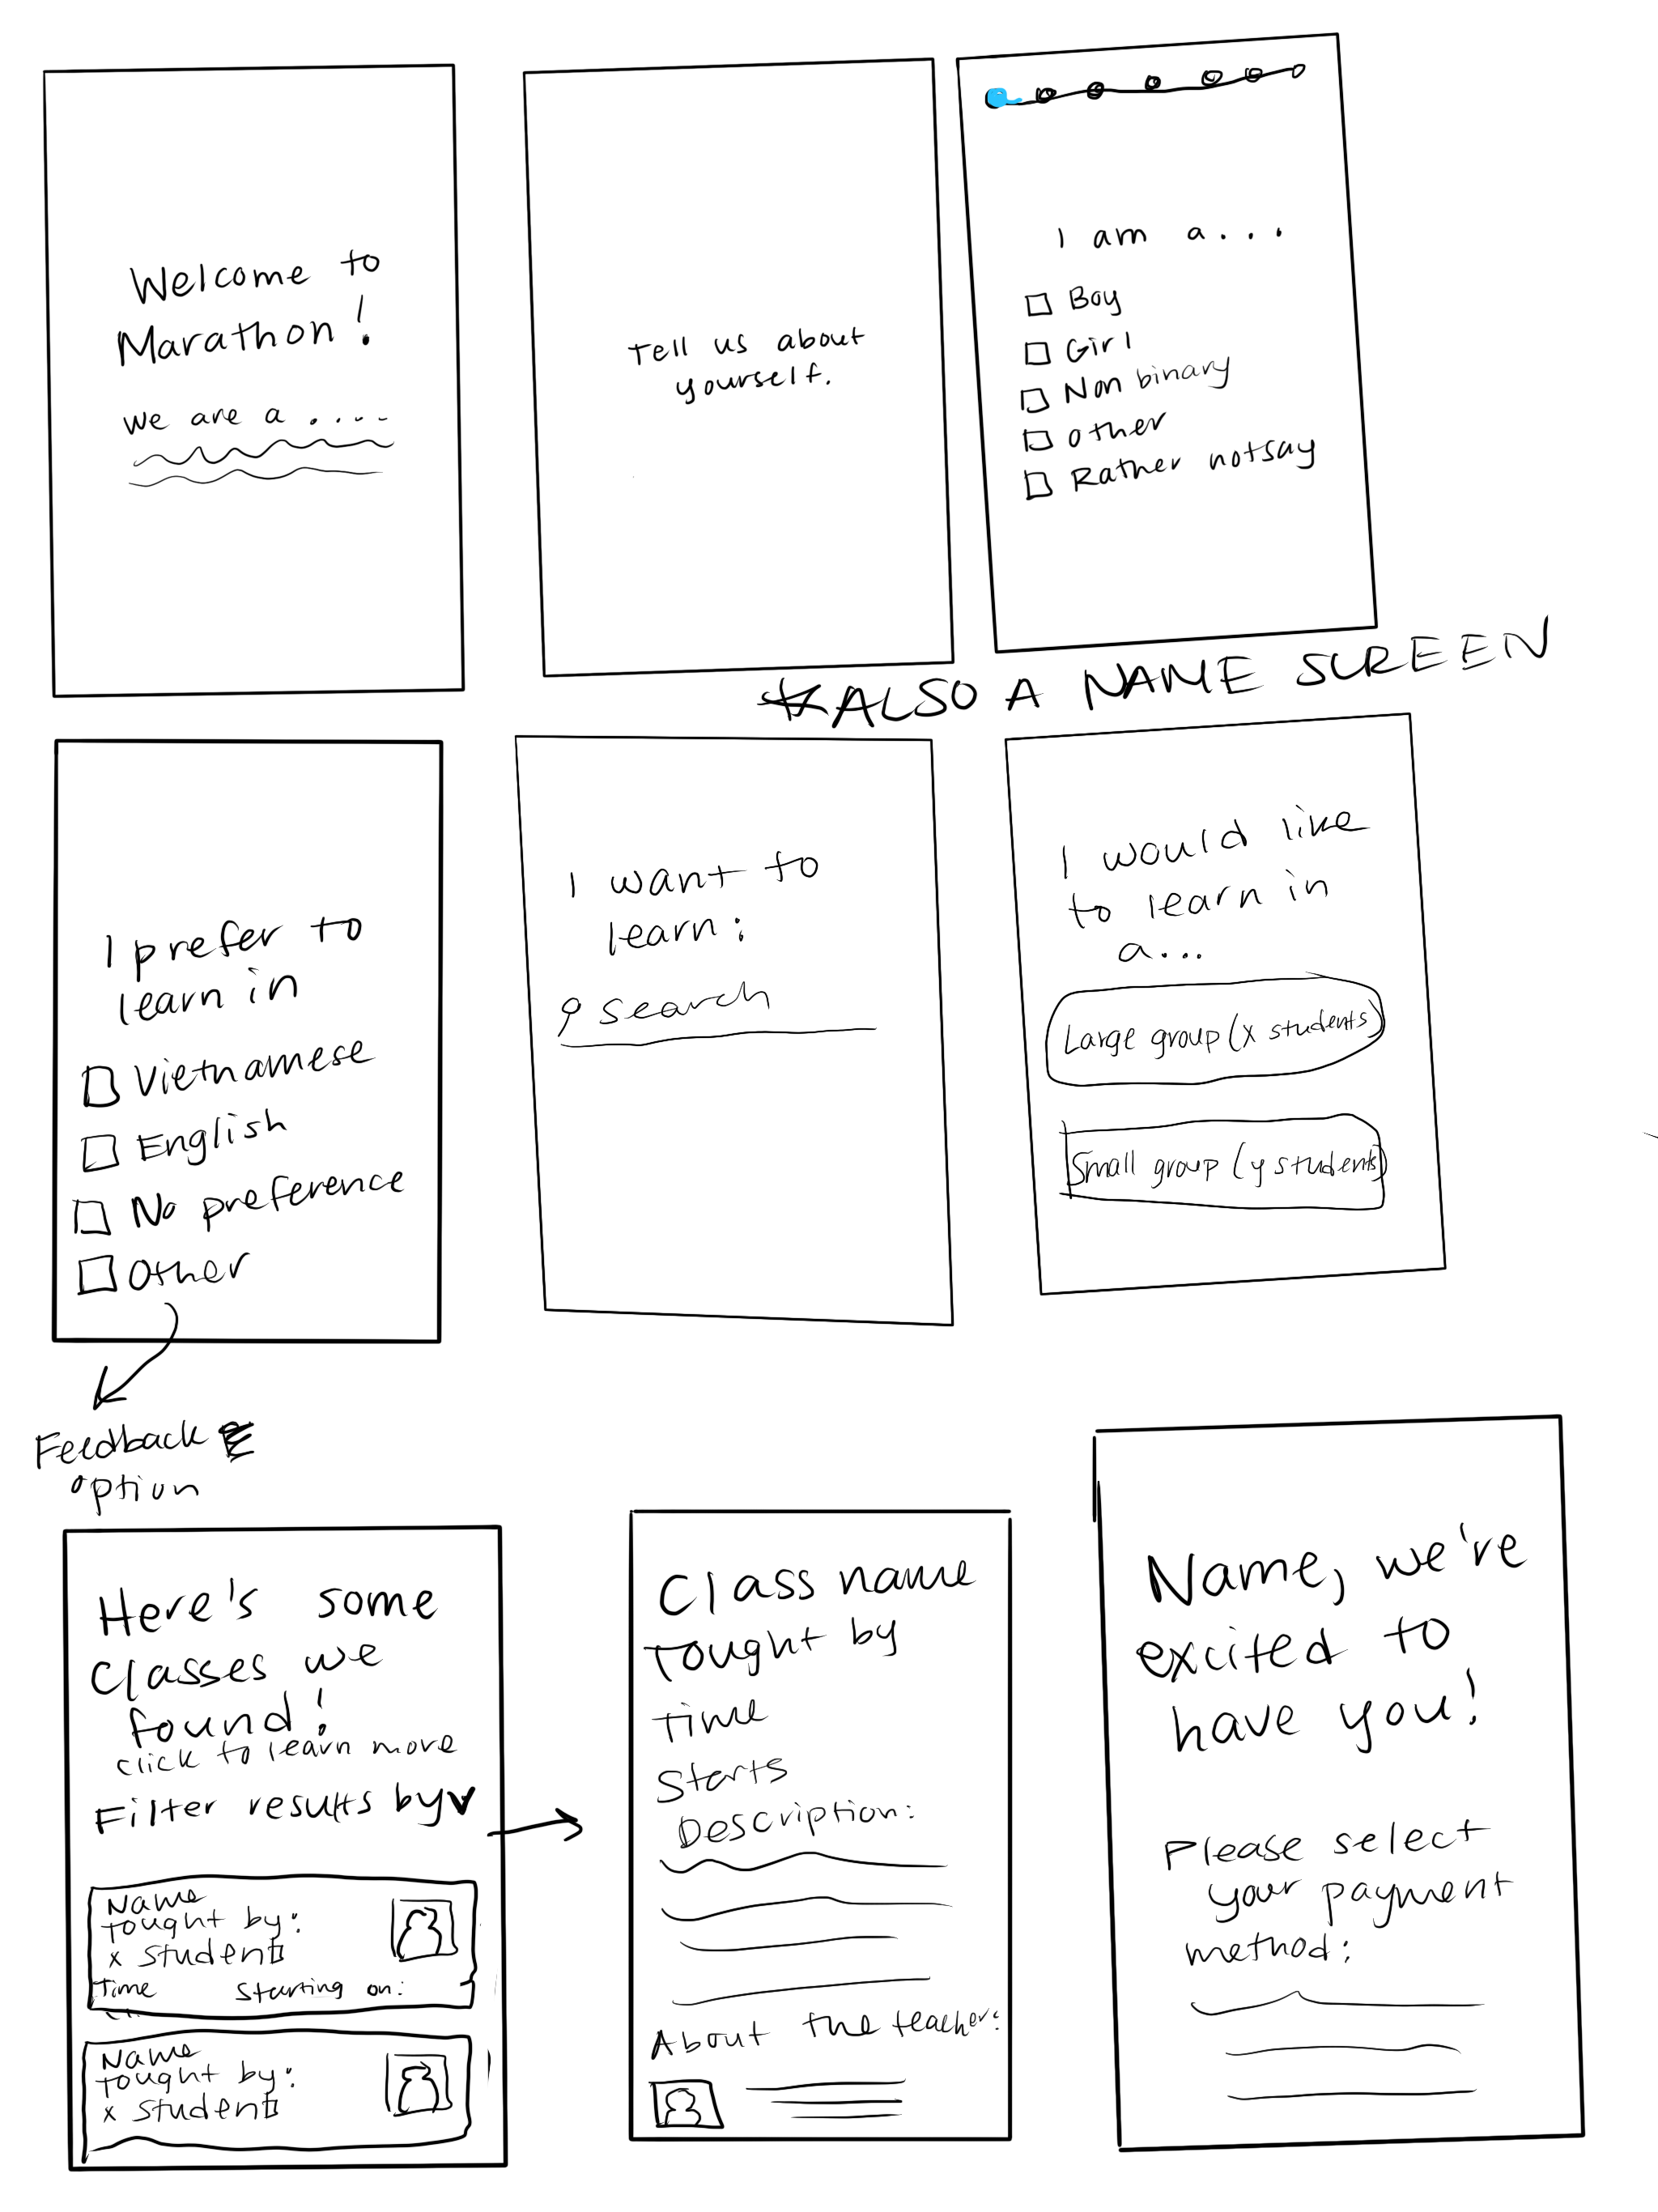 Welcome to
Marathon!
we are a ....
Tell us about
yourself.
I am a...
Boy
Girl
Non binary
other
Rather not say
*ALSO A NAME SCREEN
I prefer to
learn in
Vietnamese
English
No preference
Other
Feedback
option
I want to
learn:
search
I would like
to learn in
a...
Large group (x students)
Small group (y students)
Here's some
classes we
found!
click to learn more
Filter results by
Name
tought by:
x students
Time Starting on:
Name
tought by:
x students
Class name
Tought by
Time
Starts
Description:
About the teacher:
Name, we're
excited to
have you!
Please select
your payment
method: